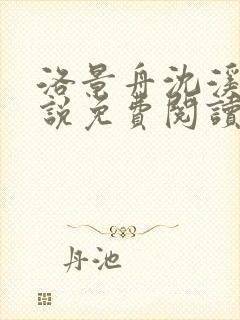 洛景舟沈溪
說免費閱讀
丹池